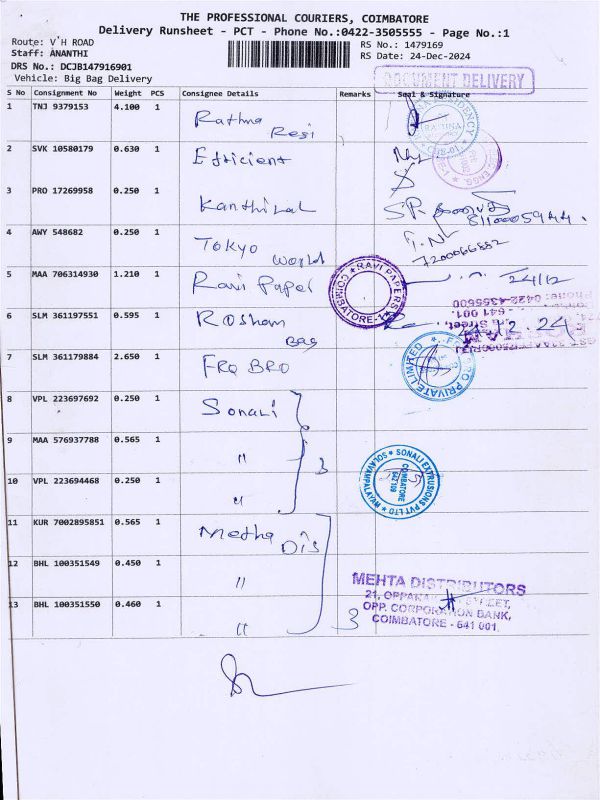 THE PROFESSIONAL COURIERS, COIMBATORE
Delivery Runsheet - PCT - Phone No.:0422-3505555 - Page No.:1
Route: V'H ROAD
Staff: ANANTHI
DRS No.: DCJB147916901
Vehicle: Big Bag Delivery
RS No.: 1479169
RS Date: 24-Dec-2024
DOCUMENT DELIVERY
S No Consignment No Weight PCS Consignee Details Remarks Seal & Signature
1 TNJ 9379153 4.100 1 Rathna Resi
2 SVK 10580179 0.630 1 Efficient
3 PRO 17269958 0.250 1 Kanthilal
4 AWY 548682 0.250 1 Tokyo World
7200066882
5 MAA 706314930 1.210 1 Ravi Paper
RAVI PAPERS
COIMBATORE-1
24/12
6 SLM 361197551 0.595 1 Rosham Bag
24.12.24
7 SLM 361179884 2.650 1 FRO BRO
PRIVATE LIMITED
8 VPL 223697692 0.250 1 Sonali
9 MAA 576937788 0.565 1 "
3
10 VPL 223694468 0.250 1 "
SONALI EXTRUSIONS PVT LTD
COIMBATORE
11 KUR 7002895851 0.565 1 Metha Dis
12 BHL 100351549 0.450 1 "
13 BHL 100351550 0.460 1 "
3
MEHTA DISTRIBUTORS
21, OPPANAKARA STREET,
OPP. CORPORATION BANK,
COIMBATORE - 641 001.